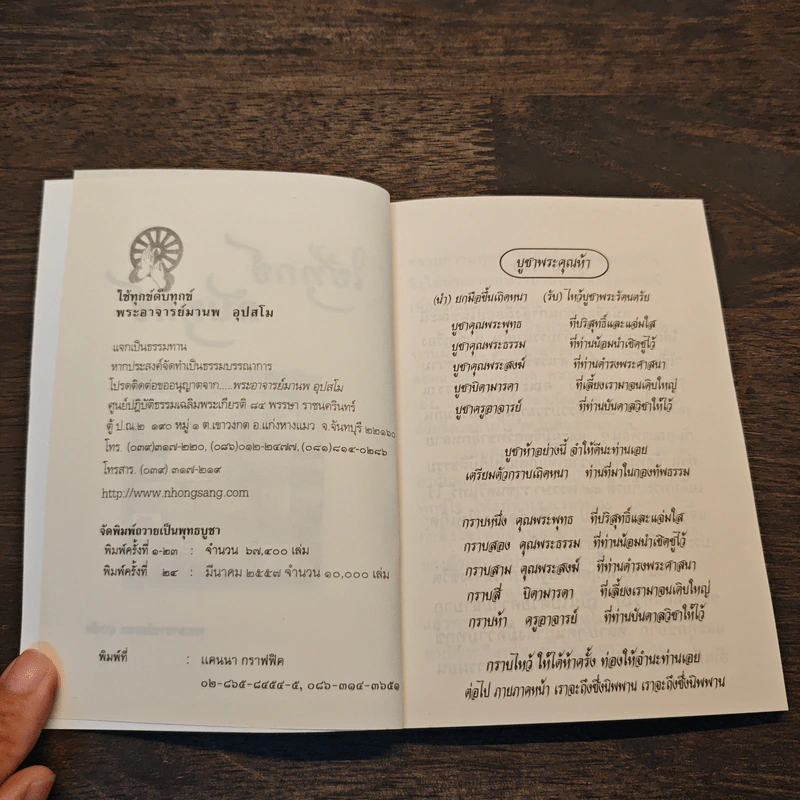 ใช้ทุกข์ดับทุกข์
พระอาจารย์มานพ อุปสโม
แจกเป็นธรรมทาน
หากประสงค์จัดทำเป็นธรรมบรรณาการ
โปรดติดต่อขออนุญาตจาก.....พระอาจารย์มานพ อุปสโม
ศูนย์ปฏิบัติธรรมเฉลิมพระเกียรติ ๘๔ พรรษา ราชนครินทร์
ตู้ ป.ณ.๒ ๑๙๐ หมู่ ๑ ต.เขาวงกต อ.แก่งหางแมว จ.จันทบุรี ๒๒๑๖๐
โทร. (๐๓๙)๓๑๗-๒๒๐, (๐๘๖)๐๑๒-๒๔๗๗, (๐๘๑)๘๑๔-๐๒๘๖
โทรสาร. (๐๓๙) ๓๑๗-๒๑๙
http://www.nhongsang.com
จัดพิมพ์ถวายเป็นพุทธบูชา
พิมพ์ครั้งที่ ๑-๒๓ : จำนวน ๖๗,๔๐๐ เล่ม
พิมพ์ครั้งที่ ๒๔ : มีนาคม ๒๕๕๗ จำนวน ๑๐,๐๐๐ เล่ม
พิมพ์ที่ : แคนนา กราฟฟิค
๐๒-๘๖๕-๘๔๕๔-๕, ๐๘๖-๓๑๔-๓๖๕๑
บูชาพระคุณห้า
(นำ) ยกมือขึ้นเถิดหนา (รับ) ไหว้บูชาพระรัตนตรัย
บูชาคุณพระพุทธ ที่บริสุทธิ์และแจ่มใส
บูชาคุณพระธรรม ที่ท่านน้อมนำเชิดชูไว้
บูชาคุณพระสงฆ์ ที่ท่านดำรงพระศาสนา
บูชาบิดามารดา ที่เลี้ยงเรามาจนเติบใหญ่
บูชาครูอาจารย์ ที่ท่านบันดาลวิชาให้ไว้
บูชาห้าอย่างนี้ จำให้ดีนะท่านเอย
เตรียมตัวกราบเถิดหนา ท่านที่มาในกองทัพธรรม
กราบหนึ่ง คุณพระพุทธ ที่บริสุทธิ์และแจ่มใส
กราบสอง คุณพระธรรม ที่ท่านน้อมนำเชิดชูไว้
กราบสาม คุณพระสงฆ์ ที่ท่านดำรงพระศาสนา
กราบสี่ บิดามารดา ที่เลี้ยงเรามาจนเติบใหญ่
กราบห้า ครูอาจารย์ ที่ท่านบันดาลวิชาให้ไว้
กราบไหว้ ให้ได้ห้าครั้ง ท่องให้จำนะท่านเอย
ต่อไป ภายภาคหน้า เราจะถึงซึ่งนิพพาน เราจะถึงซึ่งนิพพาน